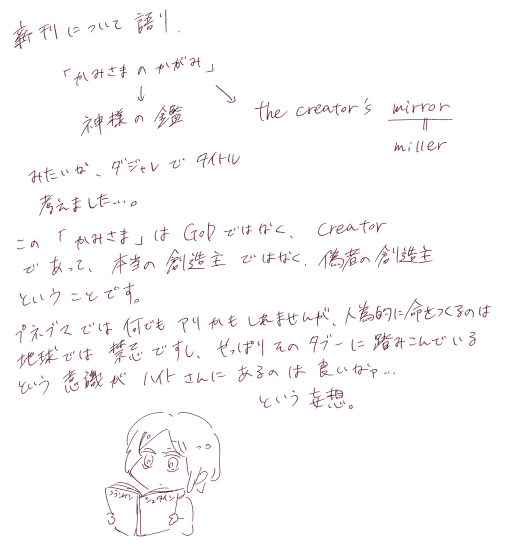 新刊について語り.
「かみさまのかがみ」
神様の鑑
the creator's mirror
miller
みたいな、ダジャレでタイトル
考えました…。
この「かみさま」はGodではなく、creator
であって、本当の創造主ではなく、偽者の創造主
ということです。
プネブスでは何でもアリかもしれませんが、人為的に命をつくるのは
地球では禁忌ですし、やっぱりそのタブーに踏みこんでいる
という意識がハイトさんにあるのは良いなァ…
という妄想。
フランケン
シュタイン